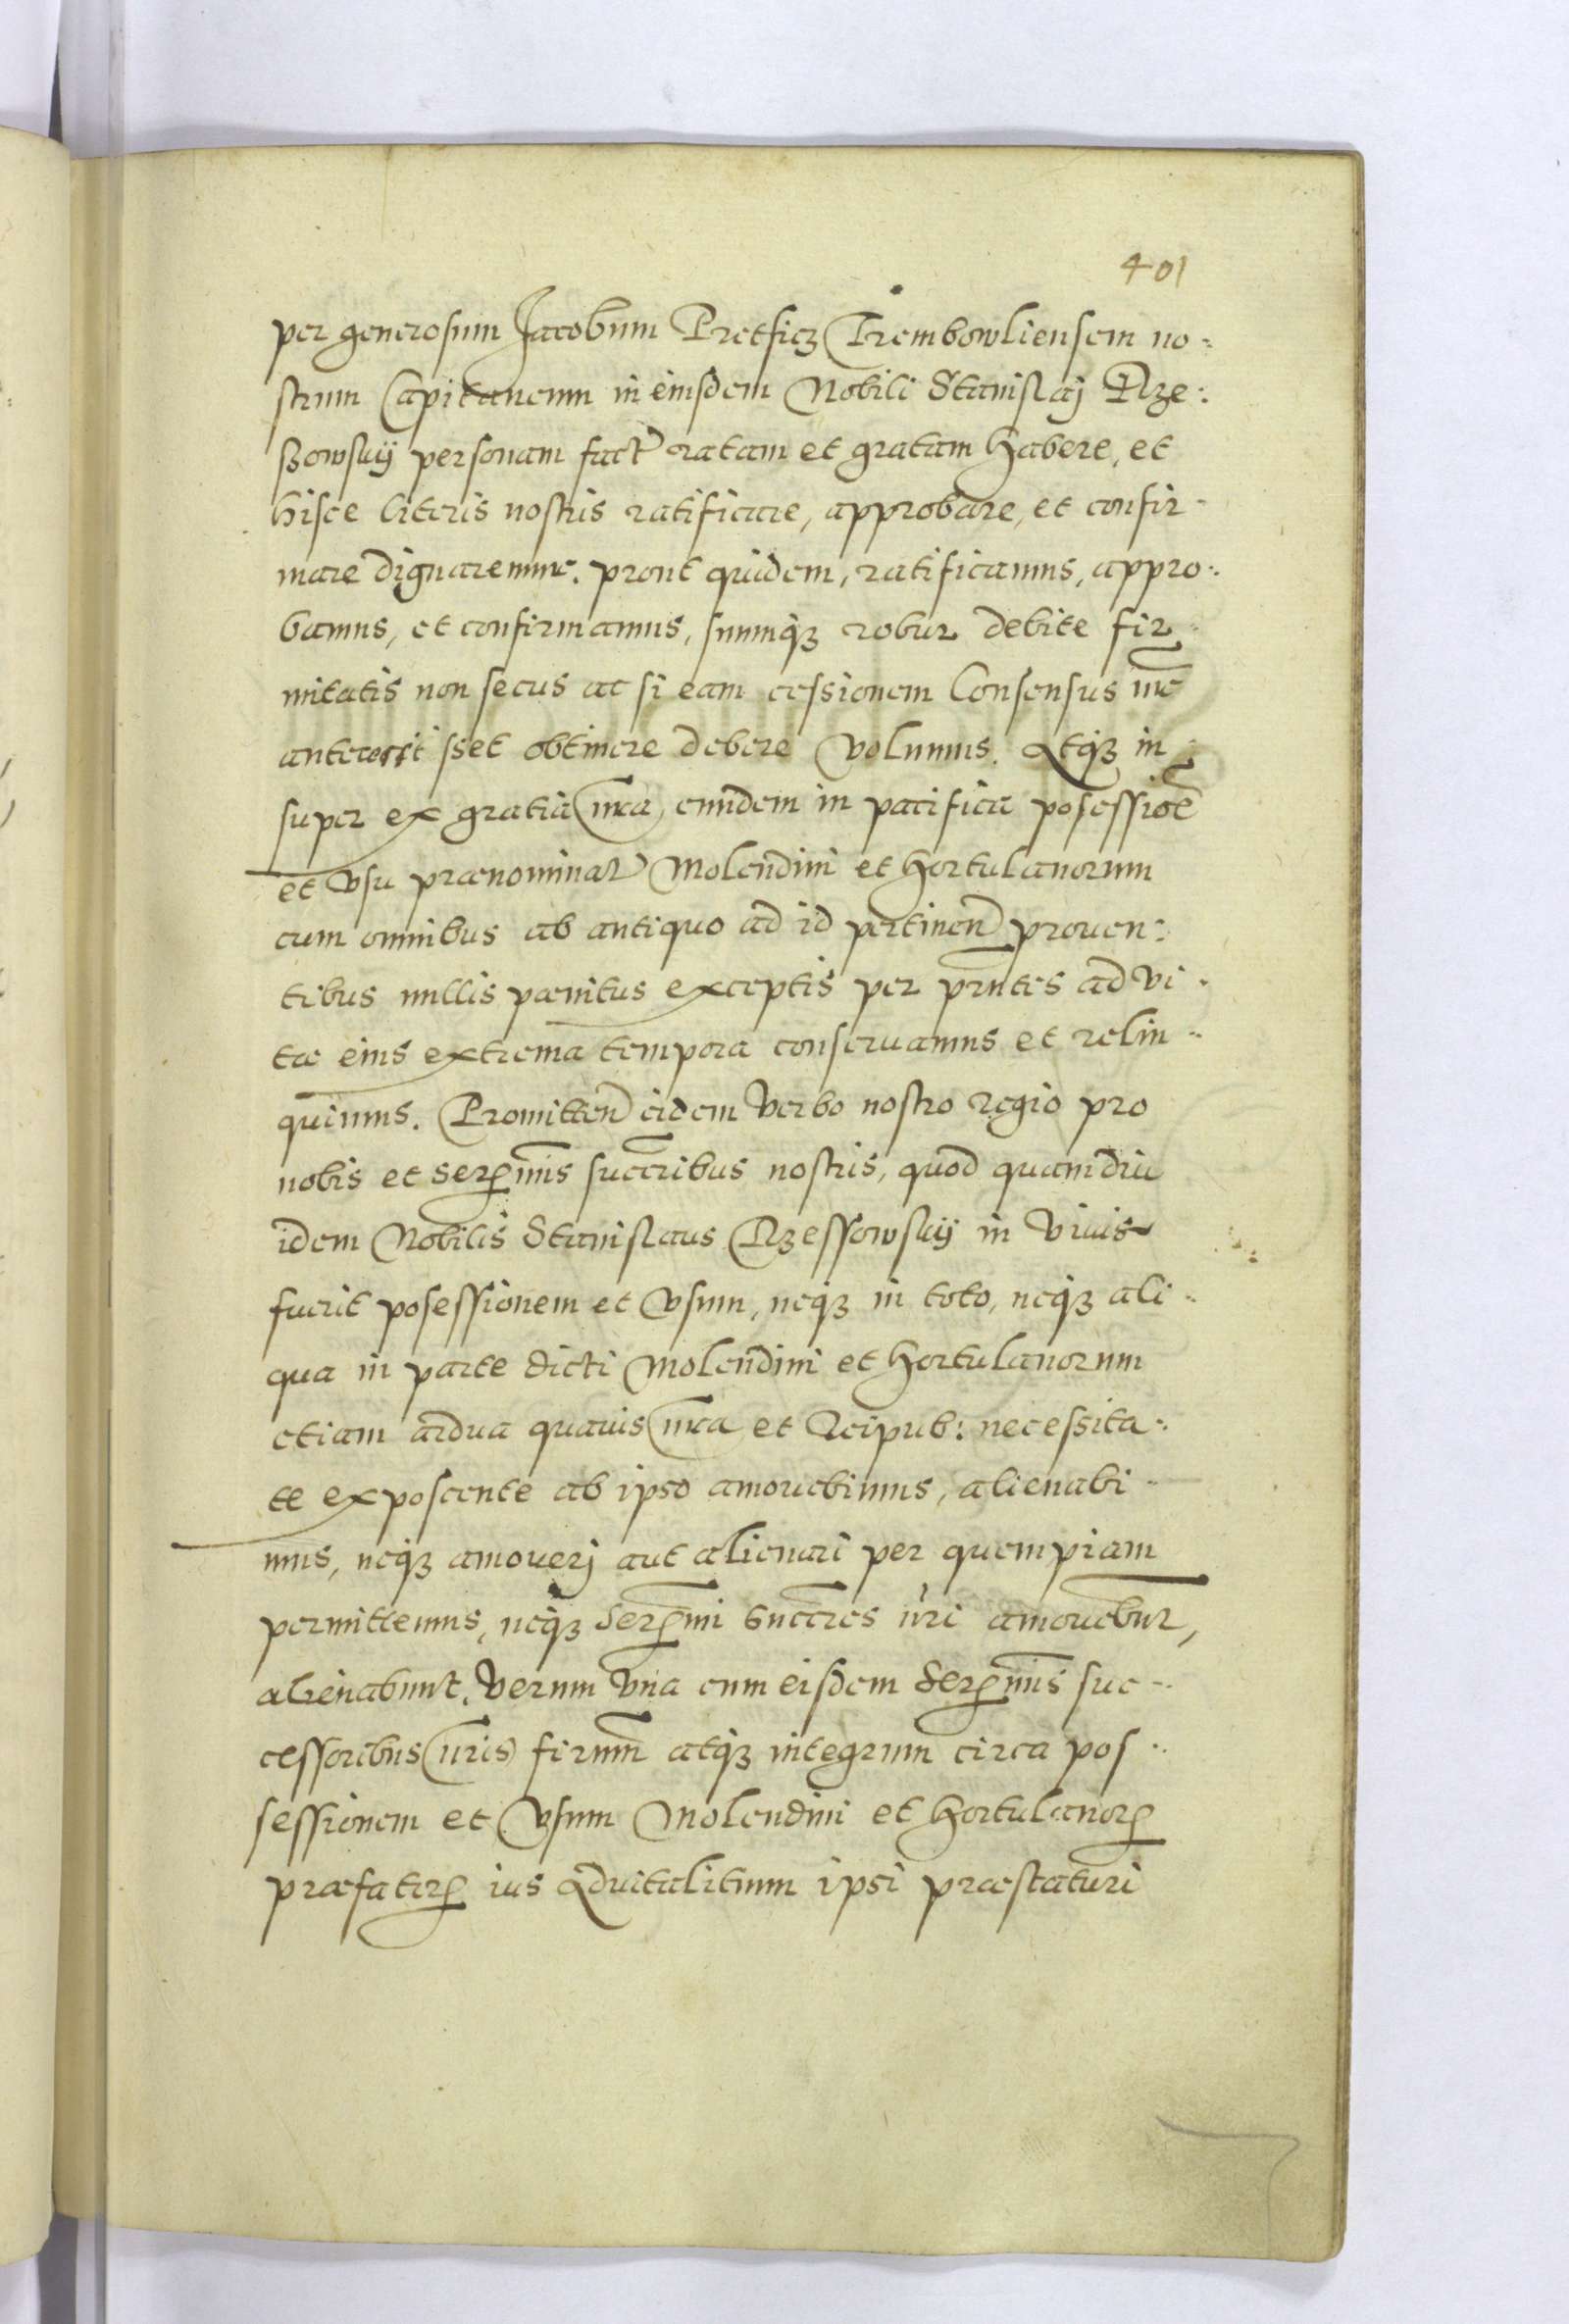 401
per generosum Jacobum Pretficz Trembowliensem no:
strum Capitaneum in eiusdem Nobili Stanislaj Rze:
szowskij personam fact ratam et gratam habere, et
hisce literis nostris ratificare, approbare, et confir-
mare dignaremur. prout quidem, ratificamus, appro:
bamus, et confirmamus, suumq3 robur debite fir
mitatis non secus ac si eam cessionem Consensus nr
antecessisset obtinere debere volumus. Atq3 in
super ex gratia nra, eundem in pacifica posessioe
et vsu prænominat Molendini et hortulanorum
cum omnibus ab antiquo ad id pertinen prouen:
tibus nullis pænitus exceptis per pntes ad vi-
tæ eius extrema tempora conseruamus et relin-
quimus. Promitten eidem verbo nostro regio pro
nobis et serenmis succribus nostris, quod quamdiu
idem Nobilis Stanislaus Rzessowskij in viuis
fuerit posessionem et vsum, neq3 in toto, neq3 ali-
qua in parte dicti Molendini et hortulanorum
etiam ardua quauis nra et Reipub: necessita-
te exposcente ab ipso amouebimus, alienabi-
mus, neq3 amouerj aut alienari per quempiam
permittemus, neq3 Serenmi Succres nri amouebunt,
alienabunt. Verum vna cum eisdem Serenmis suc-
cessoribus nris firmm atq3 integrum circa pos-
sessionem et vsum Molendini et hortulanor
præfator ius aduitalitium ipsi præstaturi